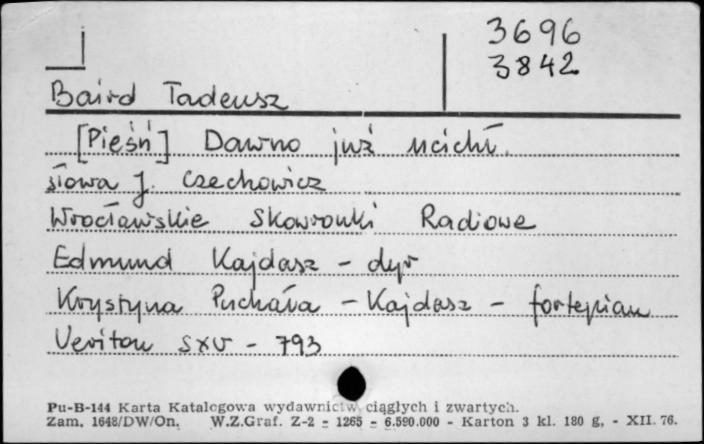 3696
3842
Baird Tadeusz
[Pieśń] Dawno już ucichł.
słowa J. Czechowicz
Wrocławskie Skowronki Radiowe
Edmund Kajdasz - dyr
Krystyna Puchała - Kajdasz - fortepian
Veriton SXV - 793
Pu-B-144 Karta Katalogowa wydawnictw ciągłych i zwartych.
Zam. 1648/DW/On. W.Z.Graf. Z-2 - 1265 - 6.590.000 - Karton 3 kl. 180 g. - XII. 76.